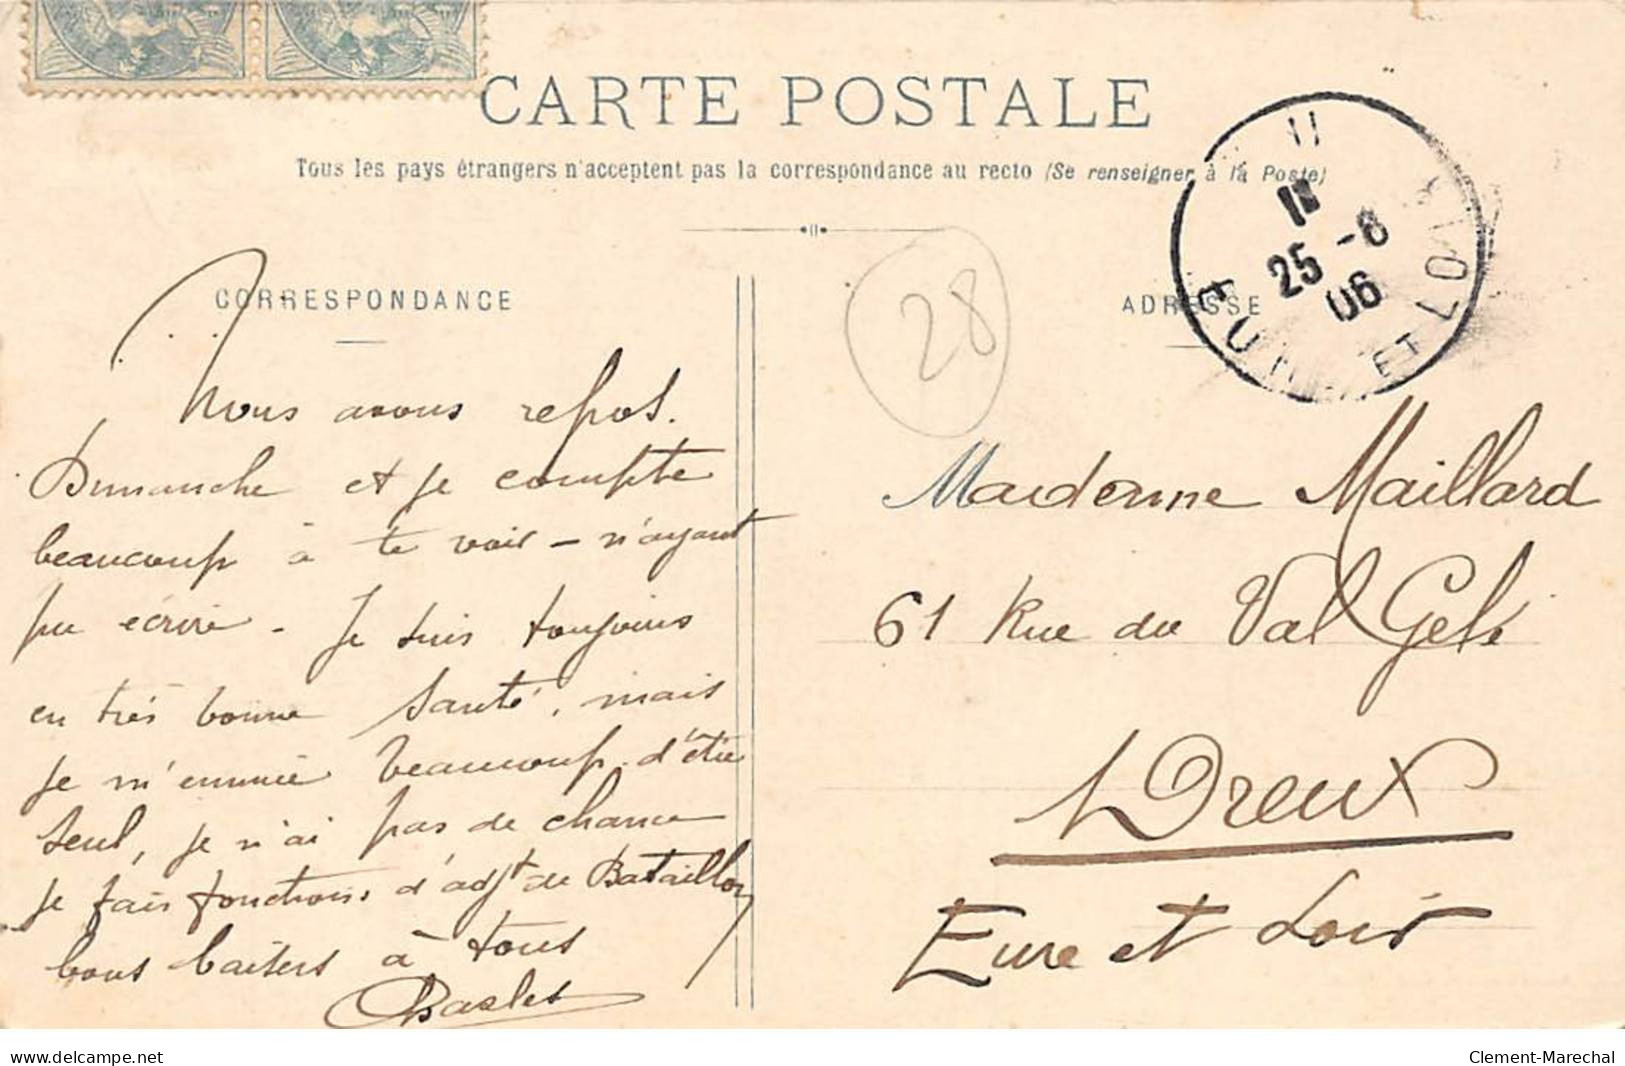 CARTE POSTALE
Tous les pays étrangers n'acceptent pas la correspondance au recto (Se renseigner à la Poste)
CORRESPONDANCE
Nous avons repos.
Dimanche et je compte
beaucoup à te voir – n'ayant
pu écrire - Je suis toujours
en très bonne Santé, mais
je m'ennuie beaucoup d'être
seul, je n'ai pas de chance
je fais fonctions d'adjt de Bataillon
bons baisers à tous
28
ADRESSE
25 -8
06
ET LOIR
Madame Maillard
61 Rue du Val Gelé
Dreux
Eure et Loir
www.delcampe.net
Clement-Marechal